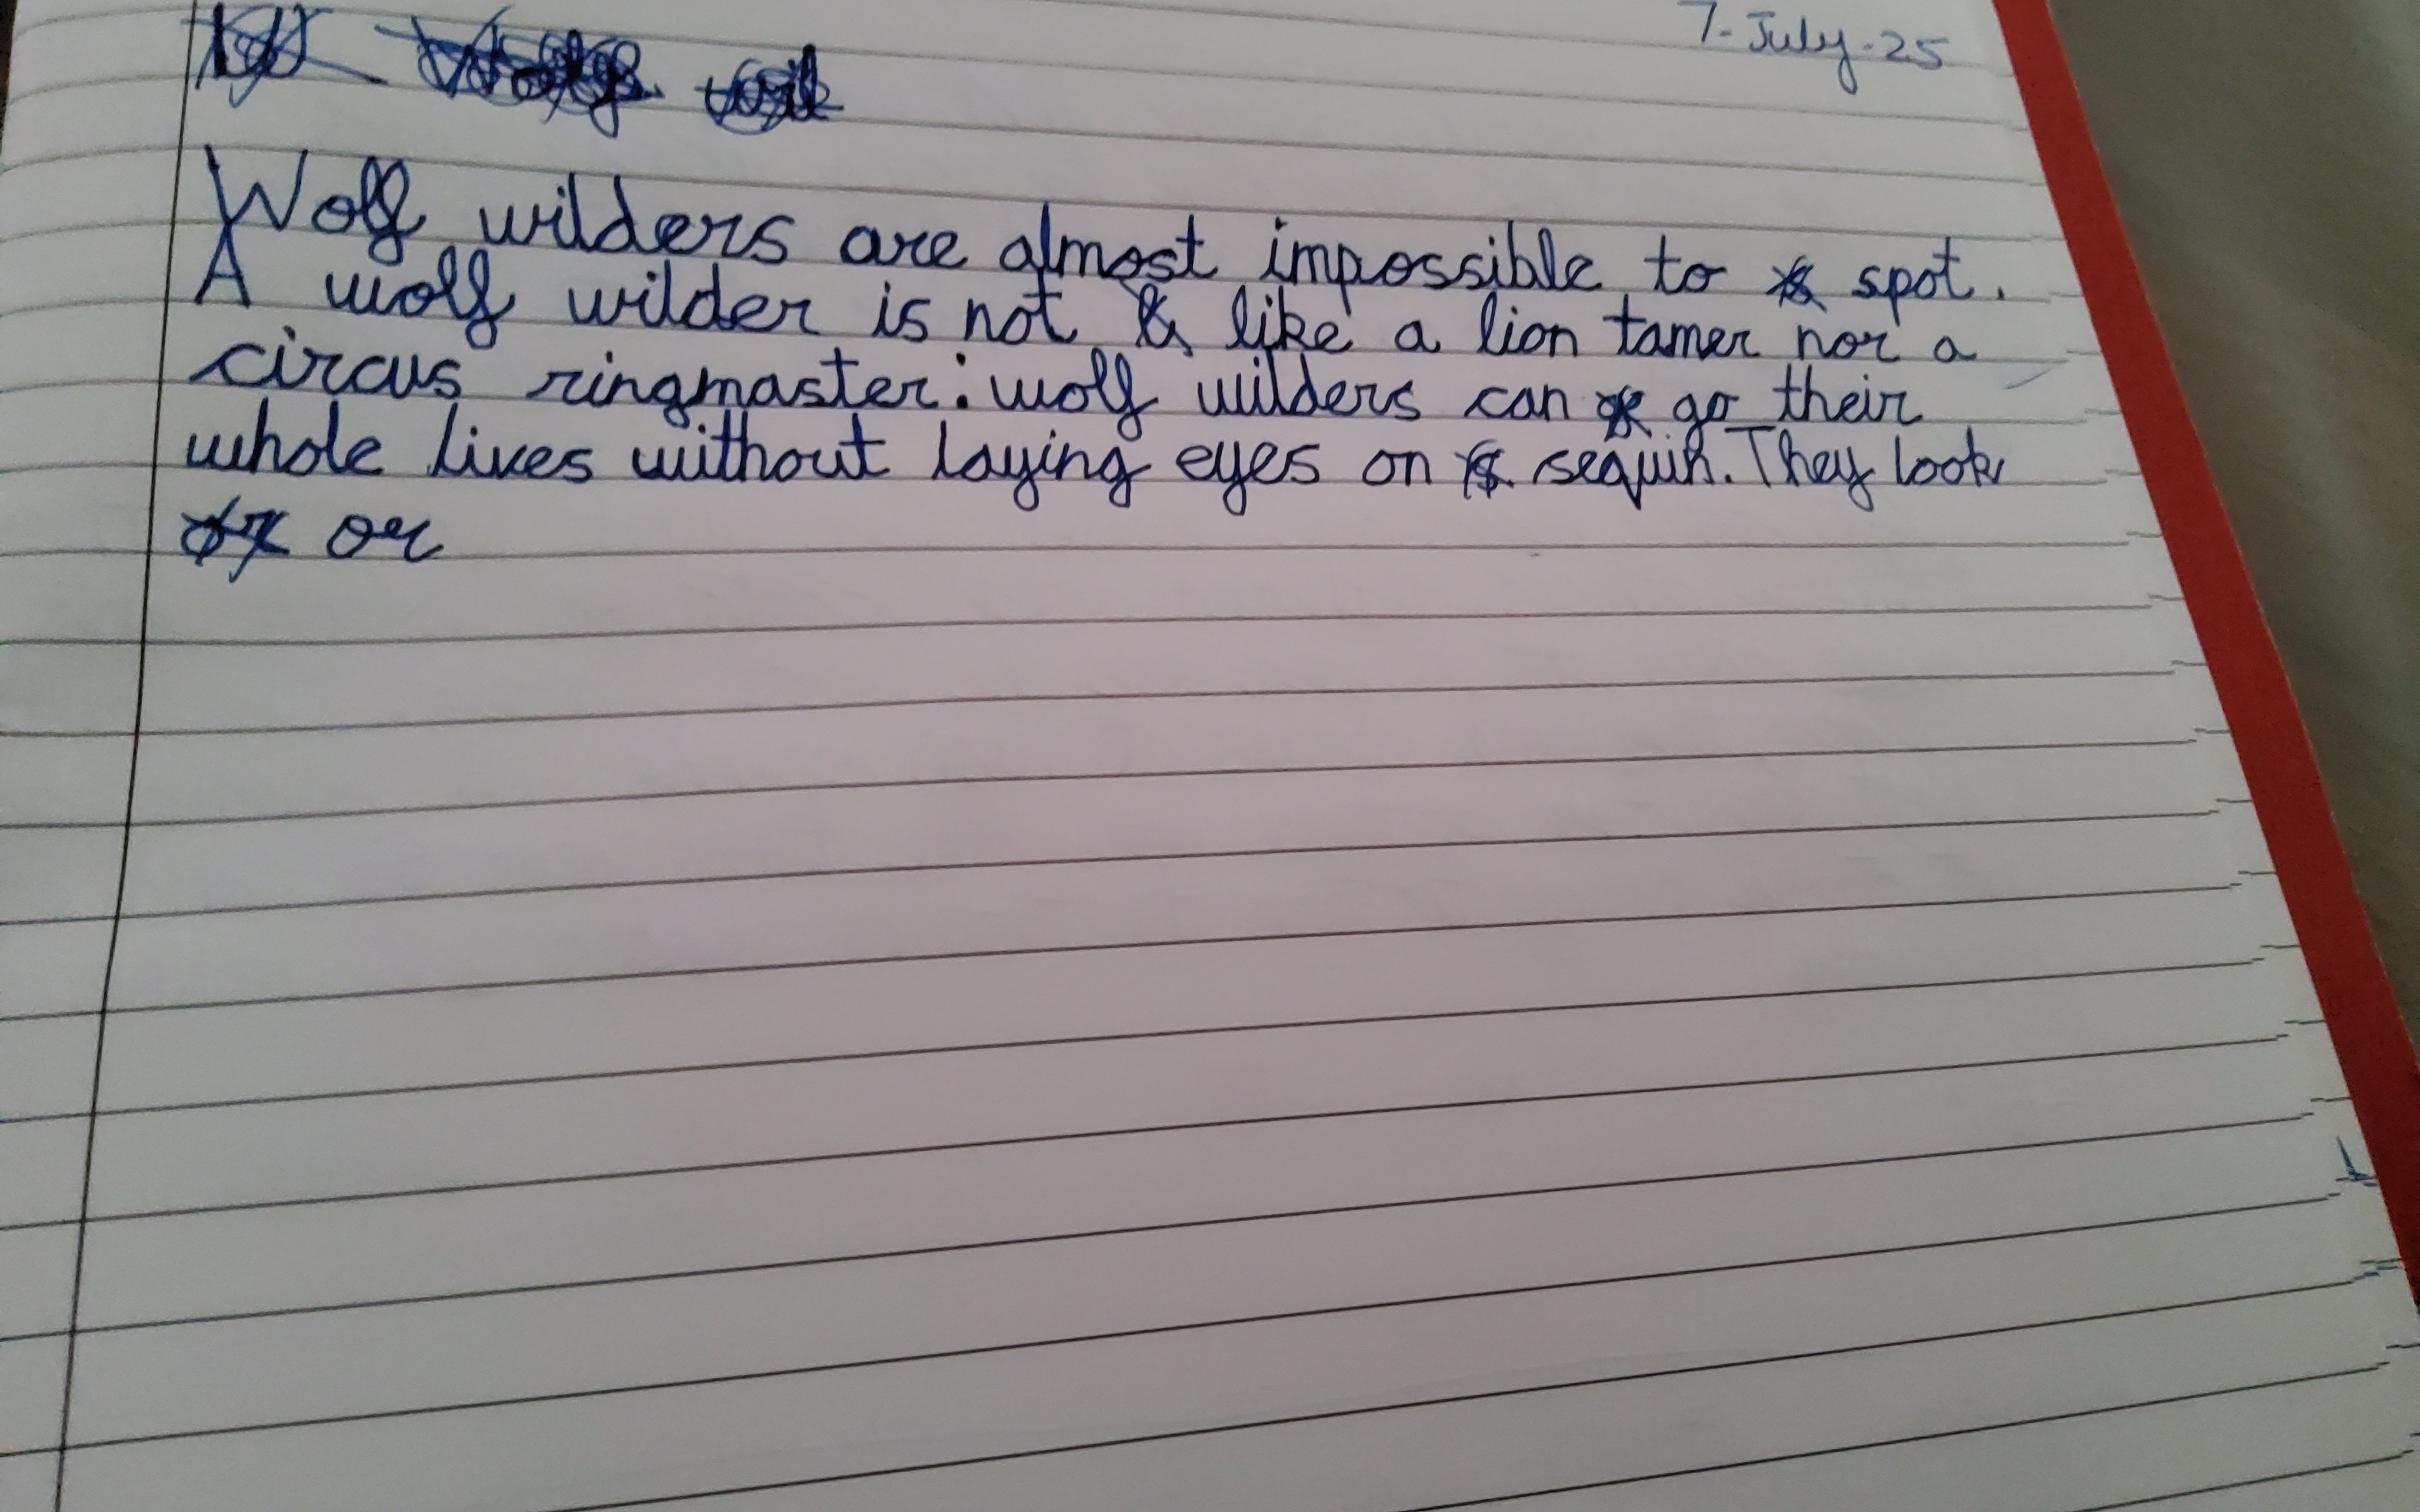 7-July-25
Wolf wilders are almost impossible to spot.
A wolf wilder is not like a lion tamer nor a
circus ringmaster: wolf wilders can go their
whole lives without laying eyes on sequin. They look
or